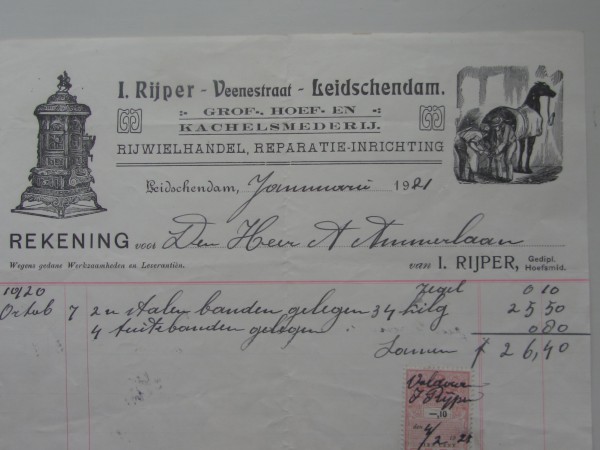 I. Rijper - Veenestraat - Leidschendam.
GROF-, HOEF- EN
KACHELSMEDERIJ.
RIJWIELHANDEL, REPARATIE-INRICHTING
Leidschendam, Januarie 1921
REKENING voor Den Heer A Ammerlaan
Wegens gedane Werkzaamheden en Leverantiën. van I. RIJPER, Gedipl. Hoefsmid.
1920 zegel 0 10
Octob 7 2 n stalen banden gelegen 34 kilg 25,50
4 tuitsbanden gelegen 0 80
Samen f 26,40
Voldaan
I Rijper
10
4/2 21